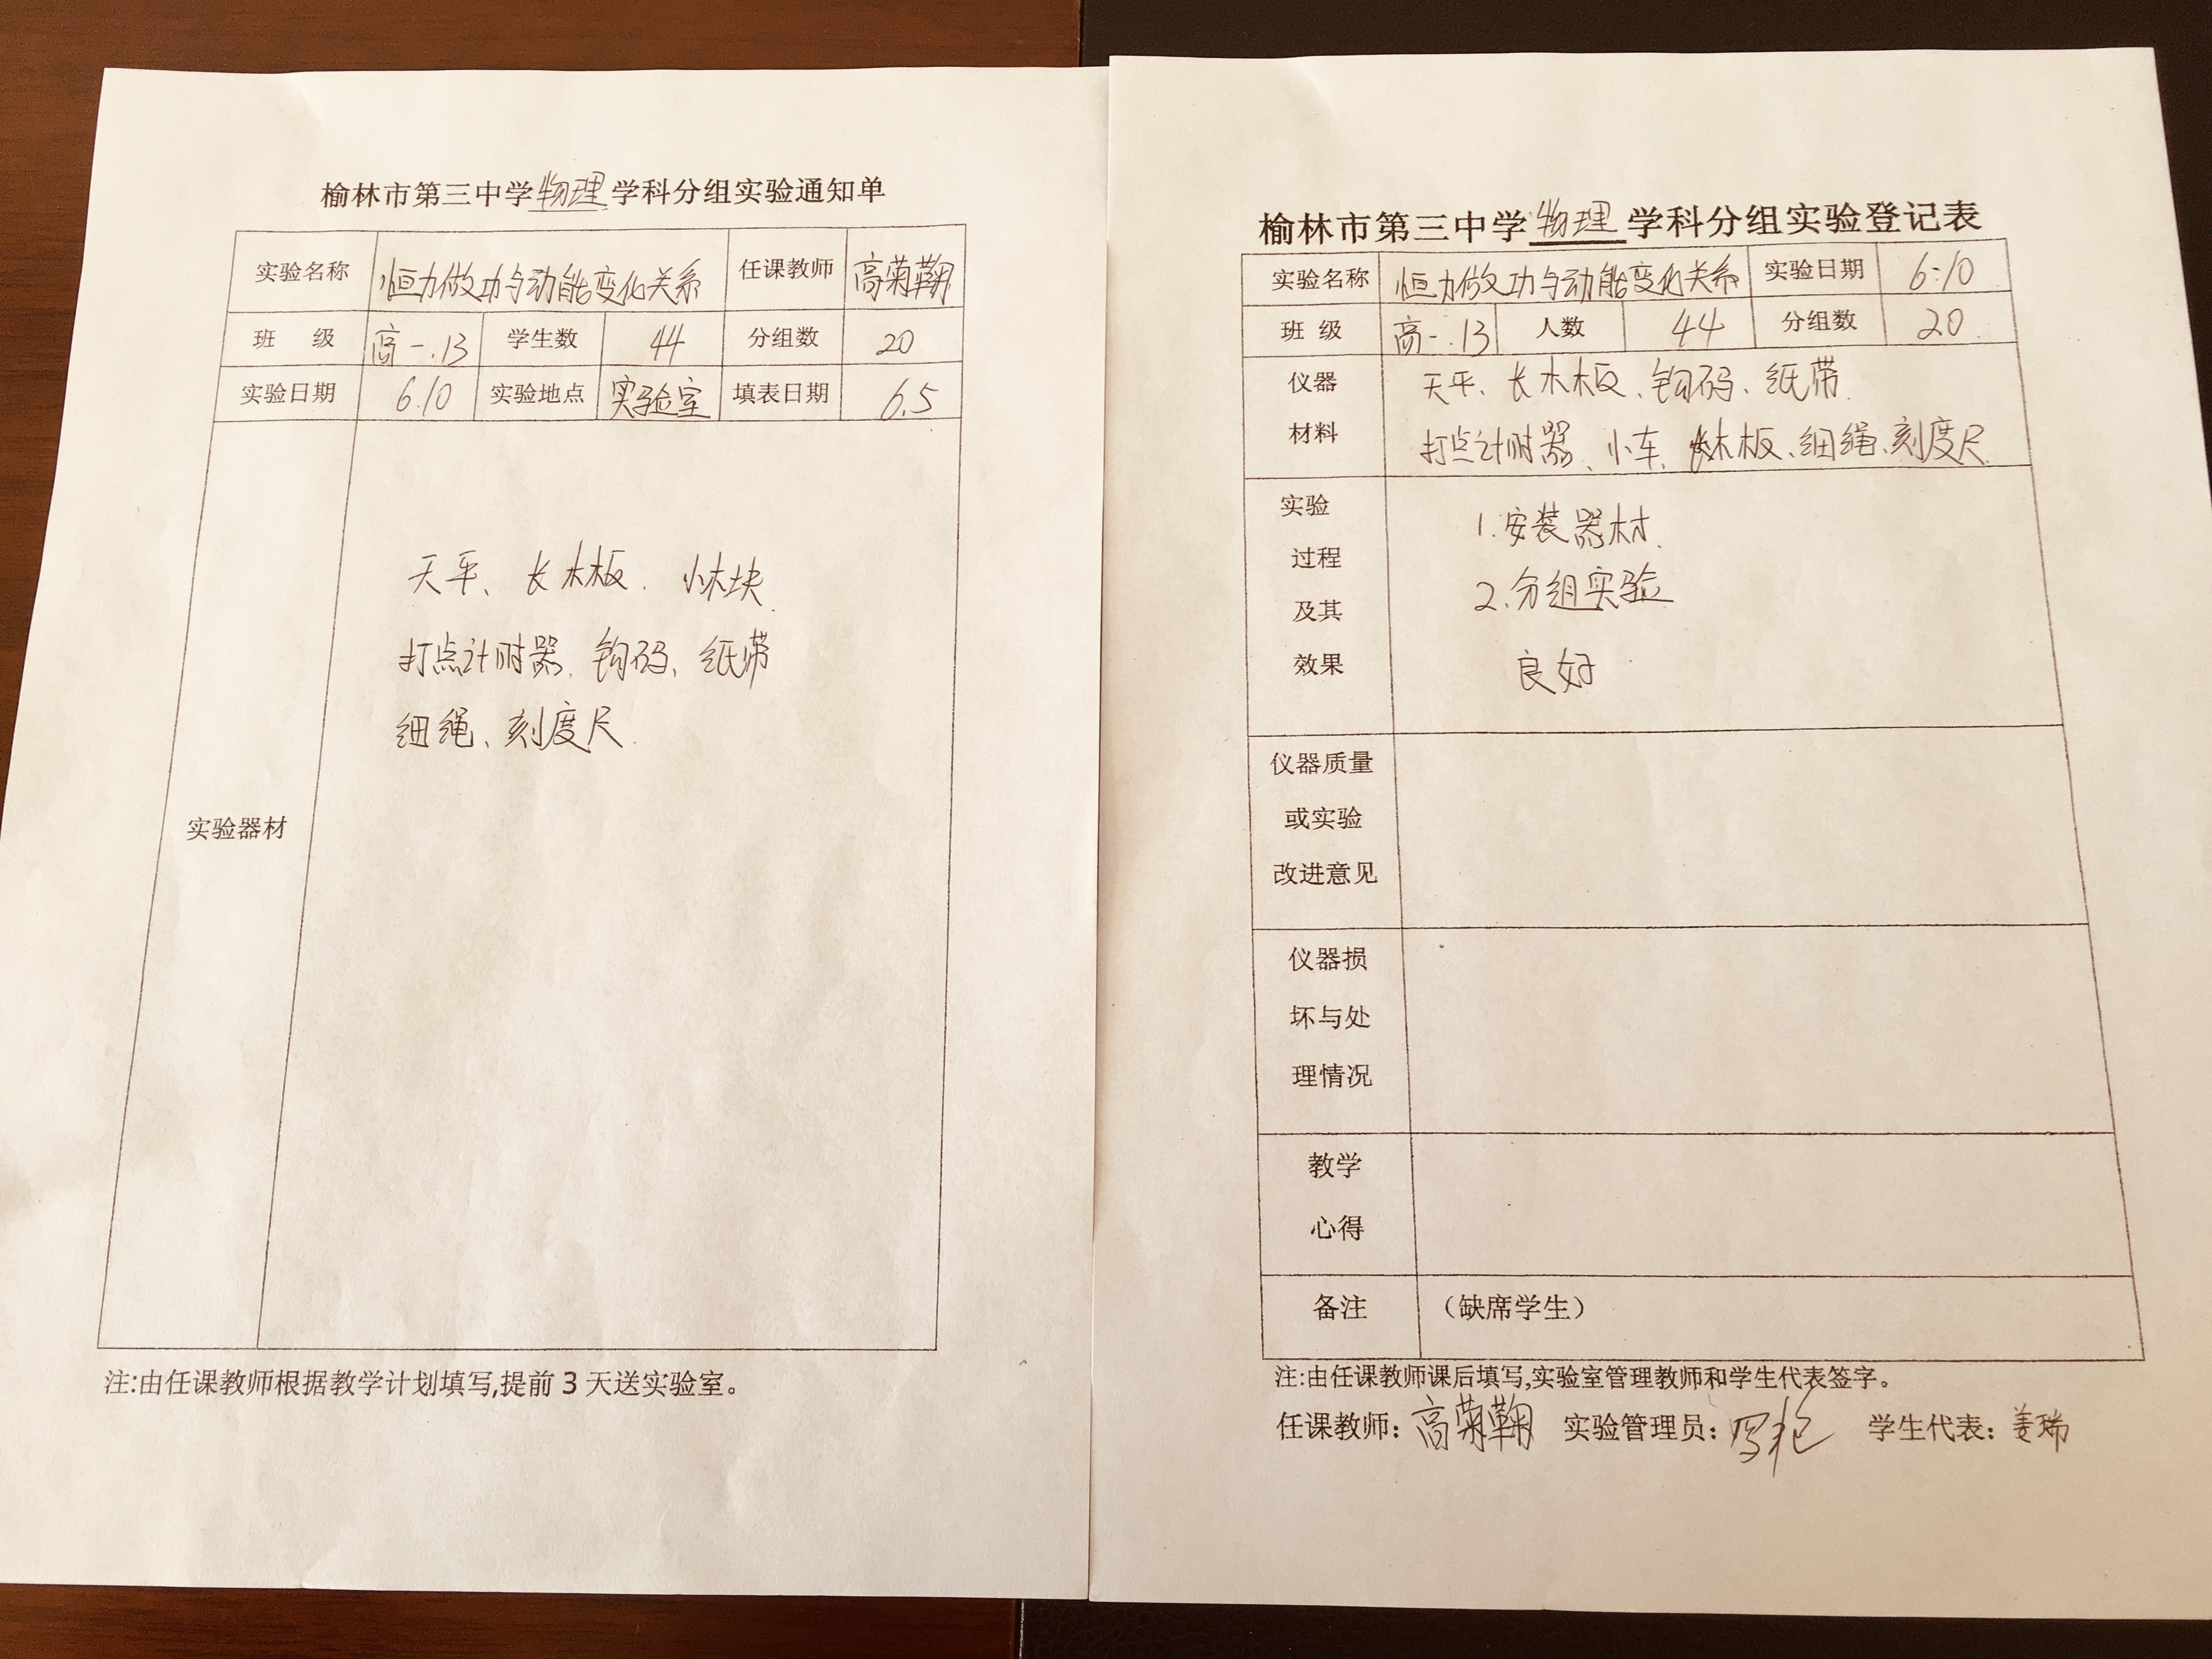 榆林市第三中学物理学科分组实验通知单
实验名称 恒力做功与动能变化关系 任课教师 高菊鞠
班 级 高一.13 学生数 44 分组数 20
实验日期 6.10 实验地点 实验室 填表日期 6.5
实验器材
天平、长木板、小木块
打点计时器、钩码、纸带
细绳、刻度尺.
注:由任课教师根据教学计划填写,提前3天送实验室。
榆林市第三中学物理学科分组实验登记表
实验名称 恒力做功与动能变化关系 实验日期 6:10
班 级 高一.13 人数 44 分组数 20
仪器
材料
天平、长木板、钩码、纸带.
打点计时器、小车、长木板、细绳、刻度尺.
实验
过程
及其
效果
1.安装器材.
2.分组实验
良好
仪器质量
或实验
改进意见
仪器损
坏与处
理情况
教学
心得
备注 (缺席学生)
注:由任课教师课后填写,实验室管理教师和学生代表签字。
任课教师: 高菊鞠 实验管理员: 学生代表: 姜瑞